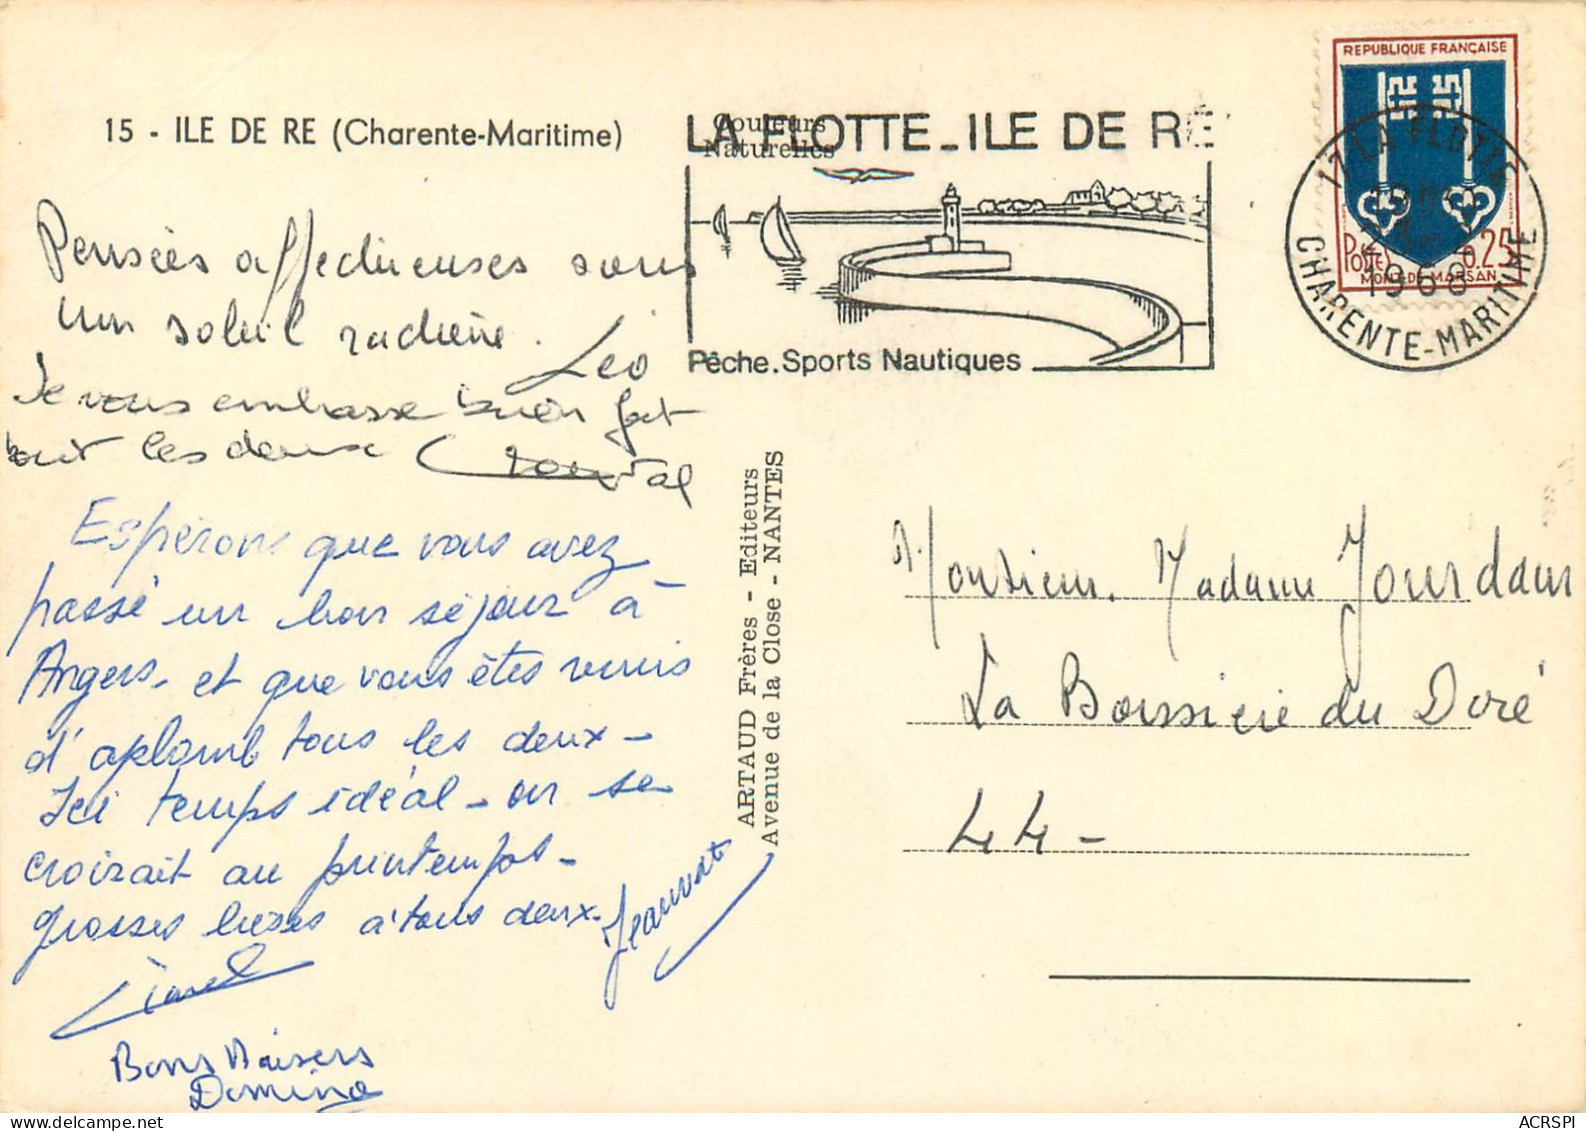 15 - ILE DE RE (Charente-Maritime)
Couleurs
Naturelles
LA FLOTTE_ILE DE RE
Pêche.Sports Nautiques
REPUBLIQUE FRANÇAISE
Postes 0,25
MONT-DE-MARSAN
17 LA FLOTTE
1968
CHARENTE-MARITIME
Pensées affectueuses sous
un soleil radieux.
Léo
Je vous embrasse bien fort
tout les deux
Espérons que vous avez
passé un bon séjour à
Angers. et que vous êtes remis
d'aplomb tous les deux -
Ici temps idéal - on se
croirait au printemps -
grosses bises à tous deux.
Bons Baisers
Domino
ARTAUD Frères - Editeurs
Avenue de la Close - NANTES
Monsieur. Madame Jourdain
La Boissière du Doré
44 -
ACRSPI